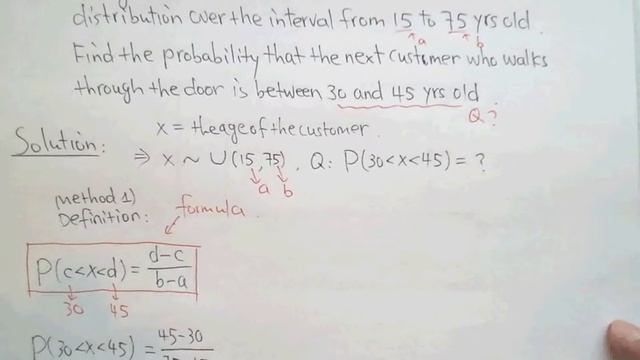 distribution over the interval from 15 to 75 yrs old.
a b
Find the probability that the next customer who walks
through the door is between 30 and 45 yrs old.
Q?
Solution: x = the age of the customer.
⇒ x ~ U(15,75). Q: P(30<x<45) = ?
a b
method 1)
Definition: formula.
P(c<x<d) = d-c / b-a
30 45
P(30<x<45) = 45-30